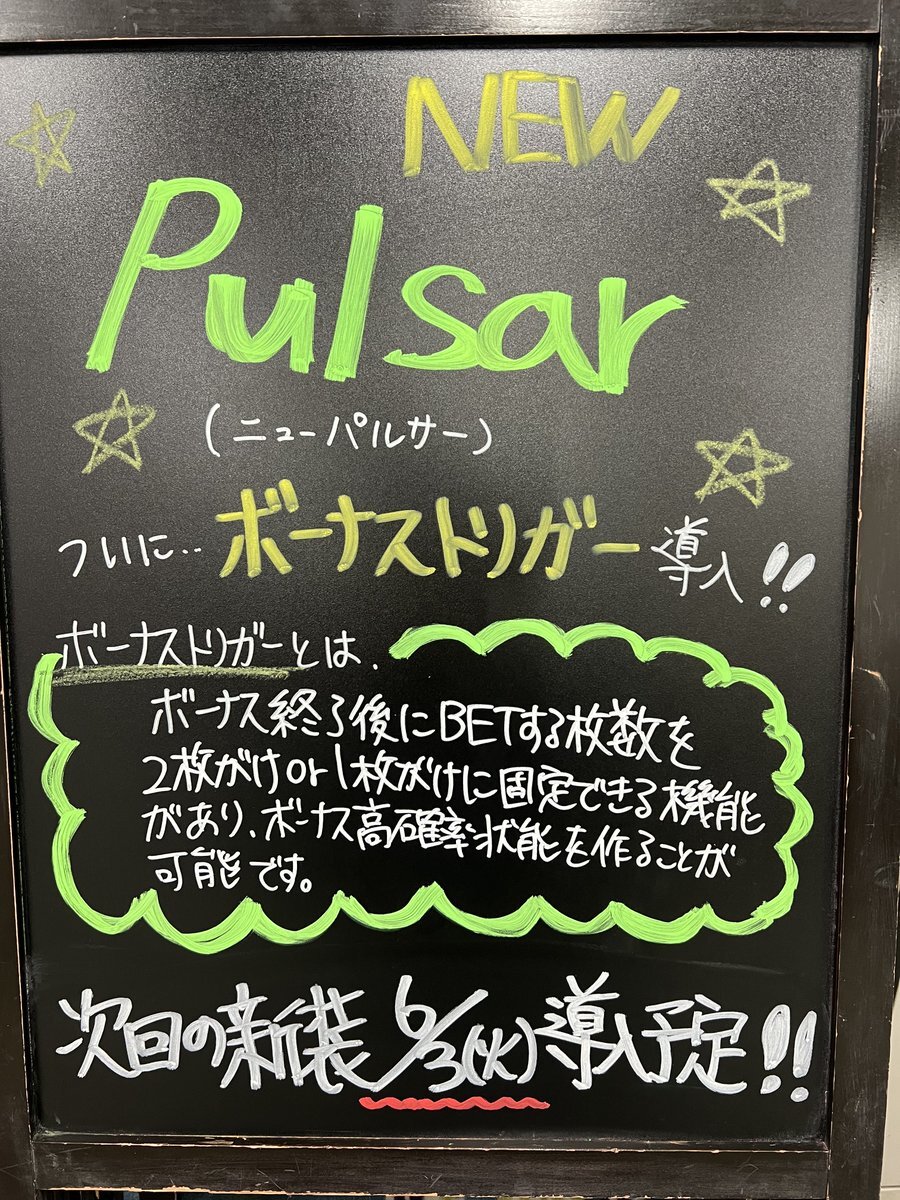 NEW
Pulsar
(ニューパルサー)
ついに‥ボーナストリガー導入!!
ボーナストリガーとは、
ボーナス終了後にBETする枚数を
2枚がけor1枚がけに固定できる機能
があり、ボーナス高確率状態を作ることが
可能です。
次回の新装6/3(火)導入予定!!